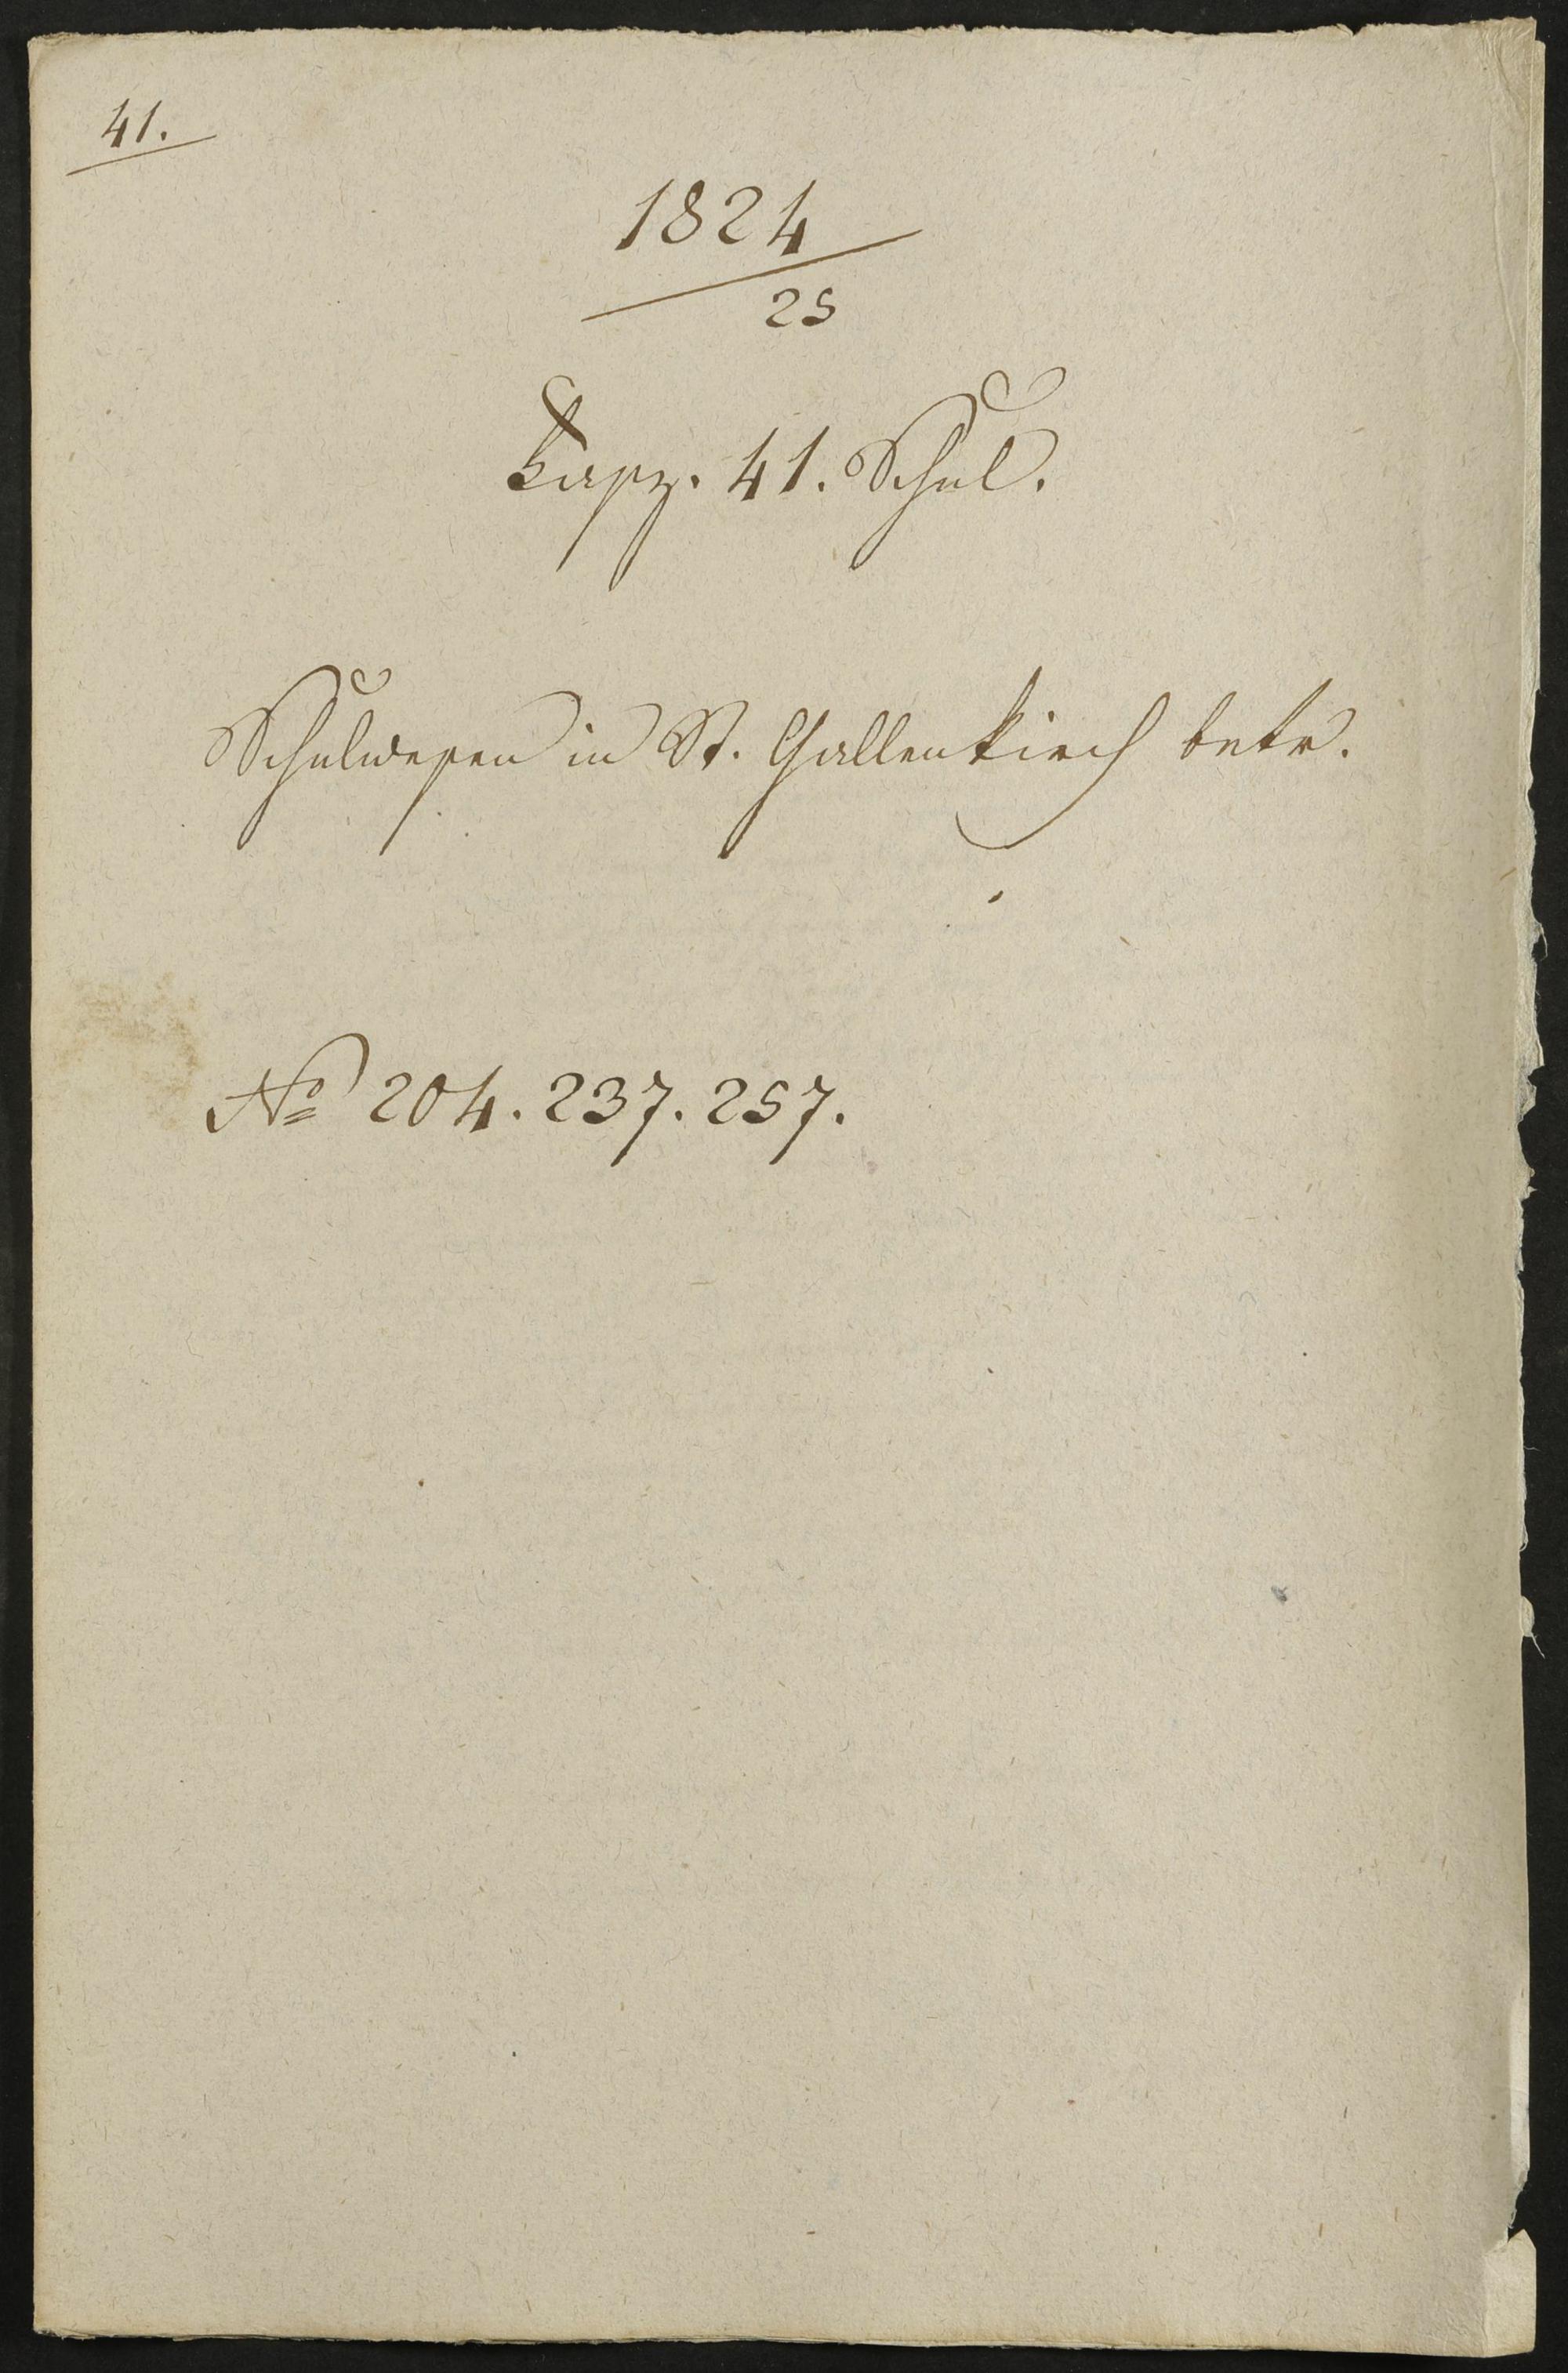 41.
1824
25
Fasz. 41. Schul.
Schulwesen in St. Gallenkirch betr.
No 204. 237. 257.